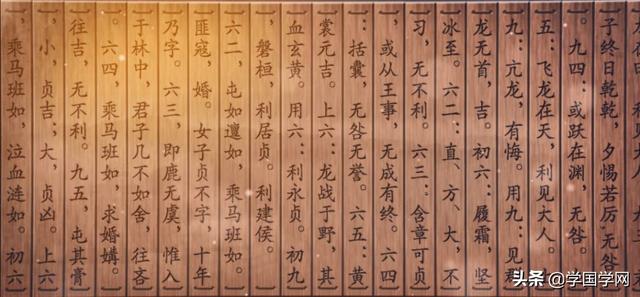 子终日乾乾，夕惕若厉，无咎
。九四：或跃在渊，无咎。
五：飞龙在天，利见大人。
九：亢龙，有悔。用九：见
龙无首，吉。初六：履霜，坚
冰至。六二：直、方、大，不
习，无不利。六三：含章可贞
或从王事，无成有终。六四
：括囊，无咎无誉。六五：黄
裳元吉。上六：龙战于野，其
血玄黄。用六：利永贞。初九
，磐桓，利居贞。利建侯。
六二，屯如邅如，乘马班如。
匪寇，婚。女子贞不字，十年
乃字。六三，即鹿无虞，惟入
于林中，君子几不如舍，往吝
。六四，乘马班如，求婚媾。
往吉，无不利。九五，屯其膏
，小，贞吉；大，贞凶。上六
，乘马班如，泣血涟如。初六
头条 @学国学网